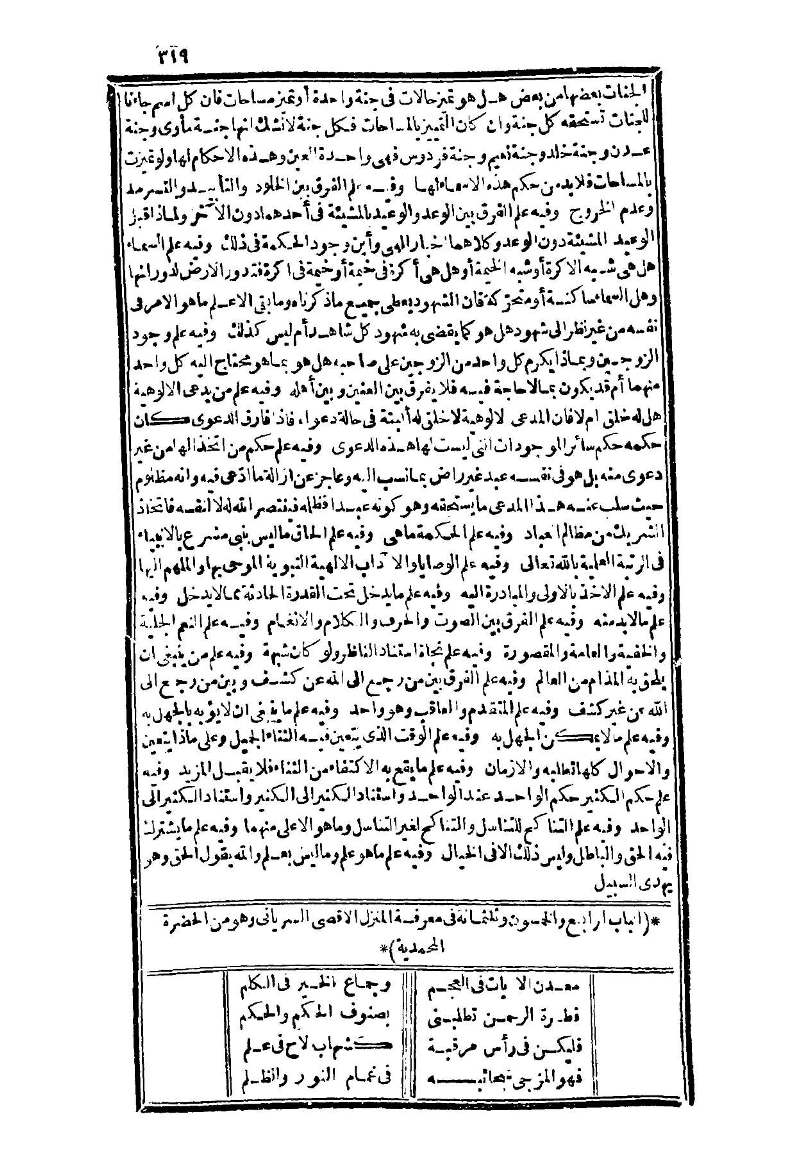 ٣١٩
الجنات بعضها من بعض هل هو تميز حالات فى جنة واحدة أو تميز مساحات فان كل اسم جاءنا
للجنات تستحقه كل جنة وان كان التمييز بالمساحات فكل جنة لانشك انها جنة مأوى وجنة
عدن وجنة خلد وجنة نعيم وجنة فردوس فهى واحدة العين وهذه الاحكام لها ولو تميزت
بالمساحات فلا بد من حكم هذه الاسماء لها وفيه علم الفرق بين الخلود والتأبيد والتسرمد
وعدم الخروج وفيه علم الفرق بين الوعد والوعيد بالمشيئة فى أحدهما دون الآخر ولماذا قبل
الوعيد المشيئة دون الوعد وكلاهما اخبار الهى وأين وجود الحكمة فى ذلك وفيه علم السماء
هل هى شبيه الاكرة أو شبه الخيمة أو هل هى أكرة فى خيمة أو خيمة فى اكرة فتدور الارض لدورانها
وهل السماء ساكنة أو متحركة فان الشهود يعطى جميع ما ذكرناه وما بقى الا علم ما هو الامر فى
نفسه من غير نظر الى شهود هل هو كما يقضى به شهود كل شاهد أم ليس كذلك وفيه علم وجود
الزوجين وبماذا يكرم كل واحد من الزوجين على صاحبه هل هو بما هو محتاج اليه كل واحد
منهما أم قد يكون بما لا حاجة فيه فلا يفرق بين العنين وبين أهله وفيه علم من يدعى الالوهية
هل له خلق ام لا فان المدعى لالوهية لا خلق له ألبتة فى حالة دعواه فاذا فارق الدعوى كان
حكمه حكم سائر الموجودات التى ليست لها هذه الدعوى وفيه علم حكم من اتخذ الها من غير
دعوى منه بل هو فى نفسه عبد غير راض بما نسب اليه وعاجز عن ازالة ما ادعى فيه وانه مظلوم
حيث سلب عنه هذا المدعى ما يستحقه وهو كونه عبدا فظلمه فينتصر الله له لا لنفسه فاتخاذ
الشريك من مظالم العباد وفيه علم الحكمة ما هى وفيه علم الحاق ما ليس بنبى مشرع بالانبياء
فى الرتبة العلمية بالله تعالى وفيه علم الوصايا والآداب الالهية النبوية الموحى بها والملهم اليها
وفيه علم الاخذ بالاولى والمبادرة اليه وفيه علم ما يدخل تحت القدرة الحادثة مما لا يدخل وفيه
علم ما لا بد منه وفيه علم الفرق بين الصوت والحرف والكلام والانغام وفيه علم النعم الجلية
والخفية والعامة والمقصورة وفيه علم نجاة استناد الناظر ولو كان شبهة وفيه علم من ينبغى ان
يلحق به المذام من العالم وفيه علم الفرق بين من رجع الى الله عن كشف وبين من رجع الى
الله عن غير كشف وفيه علم المتقدم والعاقب وهو واحد وفيه علم ما ينبغى ان لا يؤبه بالجهل به
وفيه علم ما لا يمكن الجهل به وفيه علم الوقت الذى يتعين فيه الثناء الجميل وعلى ماذا يتعين
والاحوال كلها تطلبه والازمان وفيه علم ما يقع به الاكتفاء من الثناء فلا يقبل المزيد وفيه
علم حكم الكثير حكم الواحد عند الواحد واستناد الكثير الى الكثير واستناد الكثير الى
الواحد وفيه علم التناكح للتناسل والتناكح لغير التناسل وما هو الاعلى منهما وفيه علم ما يشترك
فيه الحق والباطل وليس ذلك الا فى الخيال وفيه علم ما هو علم وما ليس بعلم والله يقول الحق وهو
يهدى السبيل
*(الباب الرابع والخمسون وثلثمائة فى معرفة المنزل الاقصى السريانى وهو من الحضرة
المحمدية)*
معدن الآيات فى العجم وجماع الخير فى الكلم
فطرة الرحمن تطلبنى بصنوف الحكم والحكم
فليكن فى رأس مرقبة كشهاب لاح فى علم
فهو المزجى سحائبه فى غمام النور والظلم